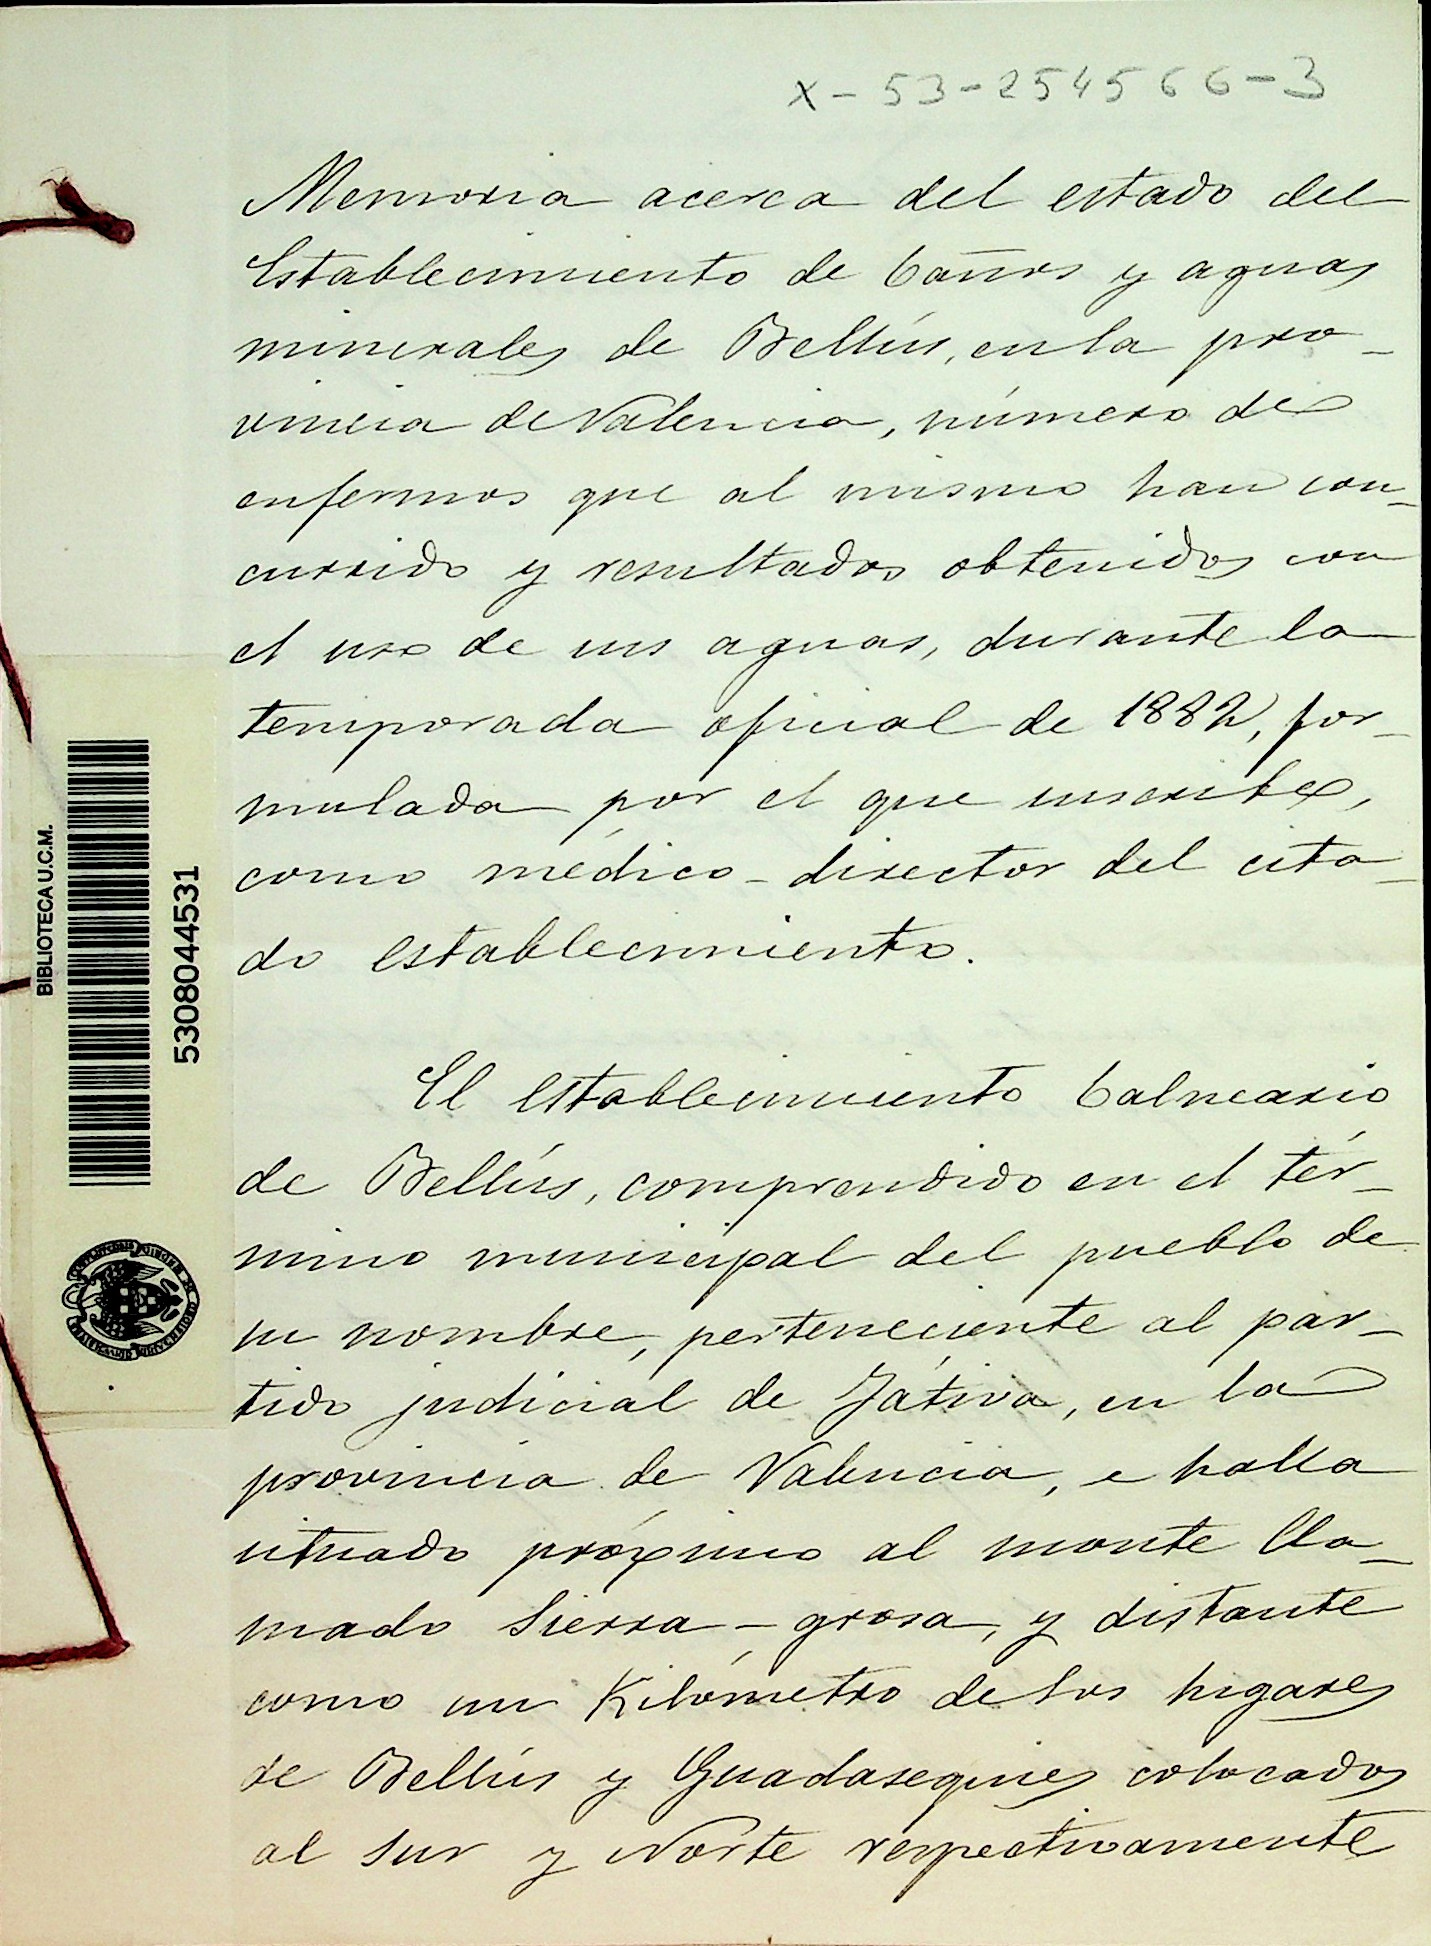 X-53-254566-3
Memoria acerca del estado del
Establecimiento de baños y aguas
minerales de Bellús, en la pro-
vincia de Valencia, número de
enfermos que al mismo han con-
currido y resultados obtenidos con
el uso de sus aguas, durante la
temporada oficial de 1882, for-
mulada por el que suscribe,
como médico-director del cita-
do establecimiento.
El establecimiento balneario
de Bellús, comprendido en el tér-
mino municipal del pueblo de
su nombre, perteneciente al par-
tido judicial de Játiva, en la
provincia de Valencia, se halla
situado próximo al monte lla-
mado Sierra-grosa, y distante
como un Kilómetro de los lugares
de Bellús y Guadasequies colocados
al Sur y Norte respectivamente
BIBLIOTECA U.C.M.
5308044531